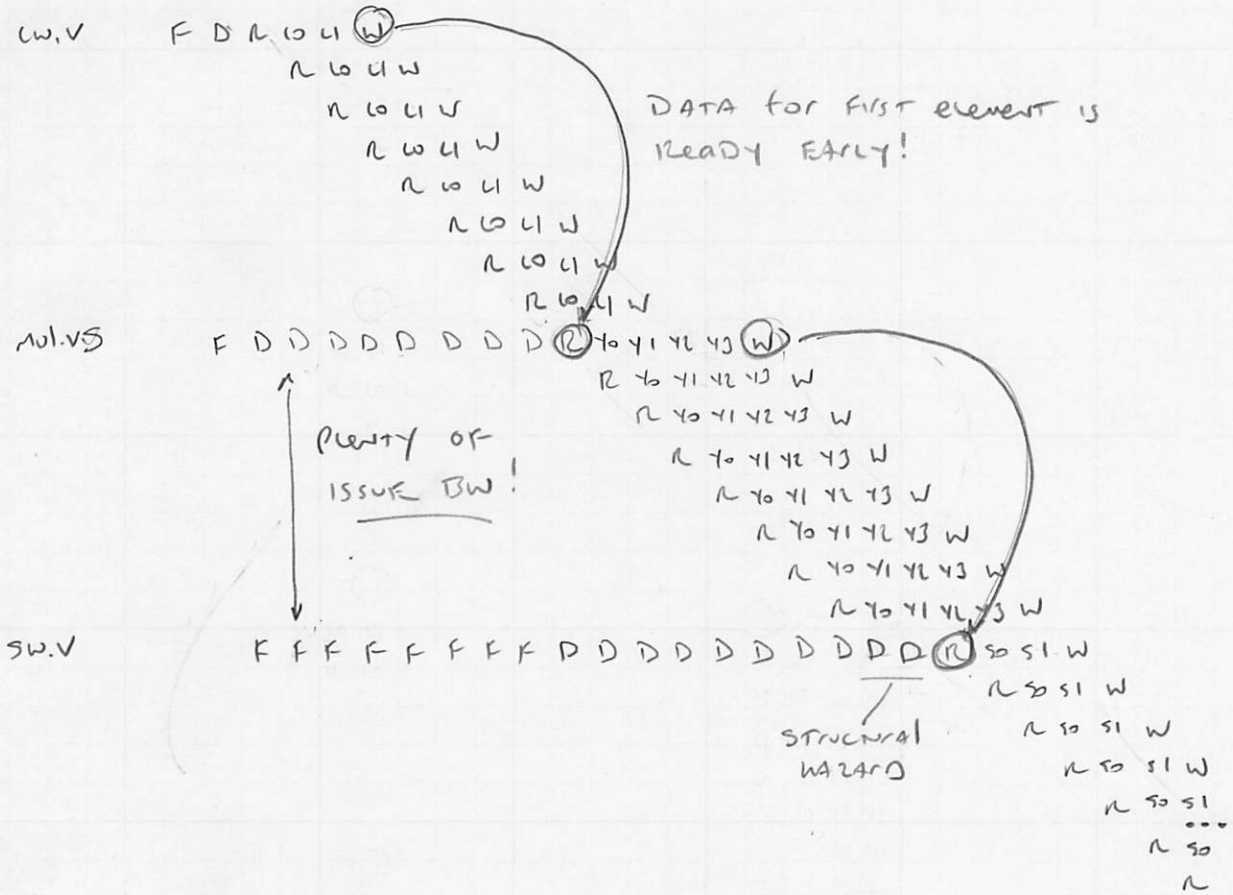 LW.V F D R L0 L1 W
R L0 L1 W
R L0 L1 W
R L0 L1 W
R L0 L1 W
R L0 L1 W
R L0 L1 W
R L0 L1 W
DATA for FIRST element is
READY EARLY!
MUL.VS F D D D D D D D D R Y0 Y1 Y2 Y3 W
R Y0 Y1 Y2 Y3 W
R Y0 Y1 Y2 Y3 W
R Y0 Y1 Y2 Y3 W
R Y0 Y1 Y2 Y3 W
R Y0 Y1 Y2 Y3 W
R Y0 Y1 Y2 Y3 W
R Y0 Y1 Y2 Y3 W
PLENTY OF
ISSUE BW!
SW.V F F F F F F F F D D D D D D D D D D R S0 S1 W
R S0 S1 W
R S0 S1 W
R S0 S1 W
R S0 S1
...
R S0
R
STRUCTURAL
HAZARD